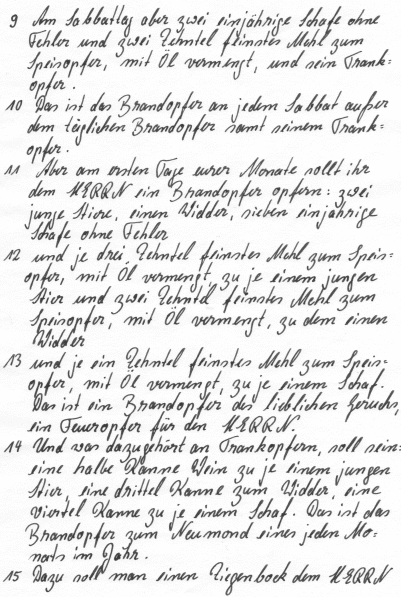 9 Am Sabbattag aber zwei einjährige Schafe ohne
Fehler und zwei Zehntel feinstes Mehl zum
Speisopfer, mit Öl vermengt, und sein Trank=
opfer.
10 Das ist das Brandopfer an jedem Sabbat außer
dem täglichen Brandopfer samt seinem Trank=
opfer.
11 Aber am ersten Tage eurer Monate sollt ihr
dem HERRN ein Brandopfer opfern: zwei
junge Stiere, einen Widder, sieben einjährige
Schafe ohne Fehler
12 und je drei Zehntel feinstes Mehl zum Speis=
opfer, mit Öl vermengt, zu je einem jungen
Stier und zwei Zehntel feinstes Mehl zum
Speisopfer, mit Öl vermengt, zu dem einen
Widder
13 und je ein Zehntel feinstes Mehl zum Speis=
opfer, mit Öl vermengt, zu je einem Schaf.
Das ist ein Brandopfer des lieblichen Geruchs,
ein Feueropfer für den HERRN.
14 Und was dazugehört an Trankopfern, soll sein:
eine halbe Kanne Wein zu je einem jungen
Stier, eine drittel Kanne zum Widder, eine
viertel Kanne zu je einem Schaf. Das ist das
Brandopfer zum Neumond eines jeden Mo=
nats im Jahr.
15 Dazu soll man einen Ziegenbock dem HERRN